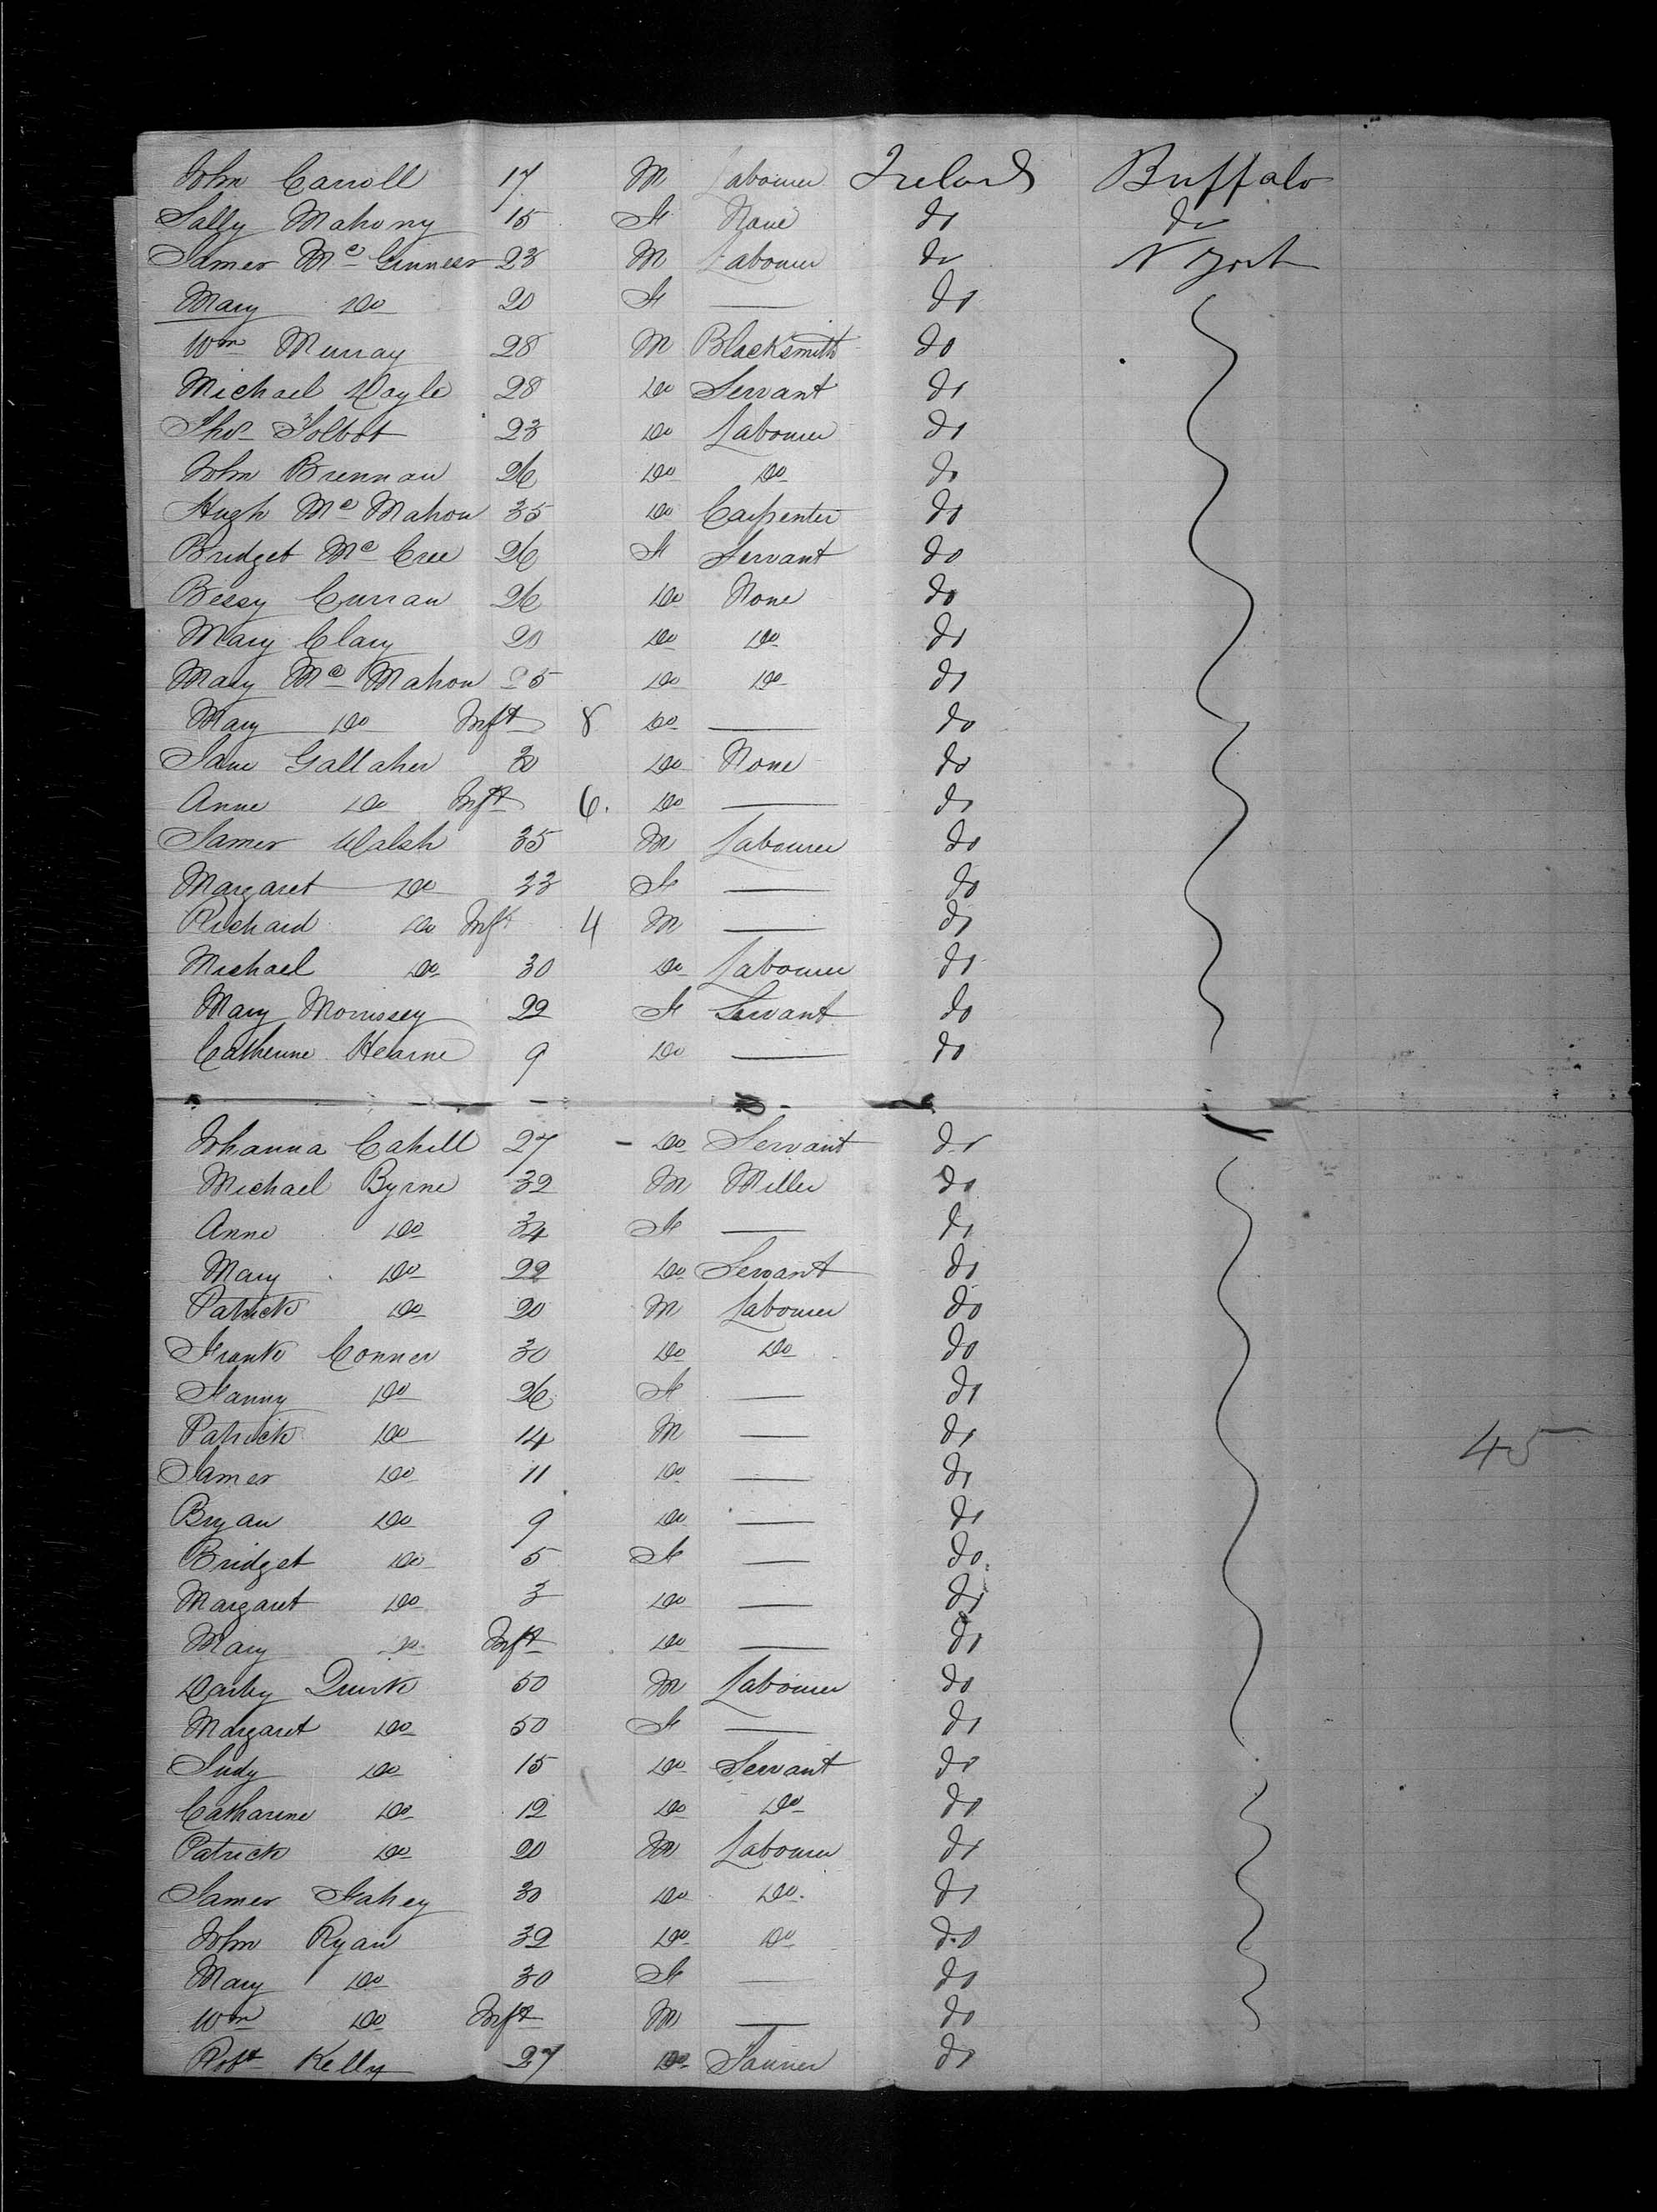 John Carroll 17 M Labourer Ireland Buffalo
Sally Mahony 15 F None do do
James Mc Guiness 23 M Labourer do N York
Mary Do 20 F — do
Wm Murray 28 M Blacksmith do
Michael Doyle 28 Do Servant do
Thos Tolbot 23 Do Labourer do
John Brennan 26 Do Do do
Hugh Mc Mahon 35 Do Carpenter do
Bridget Mc Cree 26 F Servant do
Bessy Curran 26 Do None do
Mary Clary 20 Do Do do
Mary Mc Mahon 25 Do Do do
Mary Do Inft 8 Do — do
Jane Gallaher 30 Do None do
Anne Do Inft 6. Do — do
James Walsh 35 M Labourer do
Margaret Do 33 F — do
Richard Do Inft 4 M — do
Michael Do 30 Do Labourer do
Mary Morrissey 22 F Servant do
Catherine Hearne 9 Do — do
Johanna Cahill 27 - Do Servant do
Michael Byrne 32 M Miller do
Anne Do 34 F — do
Mary Do 22 Do Servant do
Patrick Do 20 M Labourer do
Frank Conner 30 Do Do do
Fanny Do 26 F — do
Patrick Do 14 M — do 45
James Do 11 Do — do
Bryan Do 9 Do — do
Bridget Do 5 F — do
Margaret Do 3 Do — do
Mary Do Inft Do — do
Darby Quirk 50 M Labourer do
Margaret Do 50 F — do
Judy Do 15 Do Servant do
Catharine Do 12 Do Do do
Patrick Do 20 M Labourer do
James Fahey 30 Do Do do
John Ryan 32 Do Do do
Mary Do 30 F — do
Wm Do Inft M — do
Robt Kelly 27 Do Tanner do